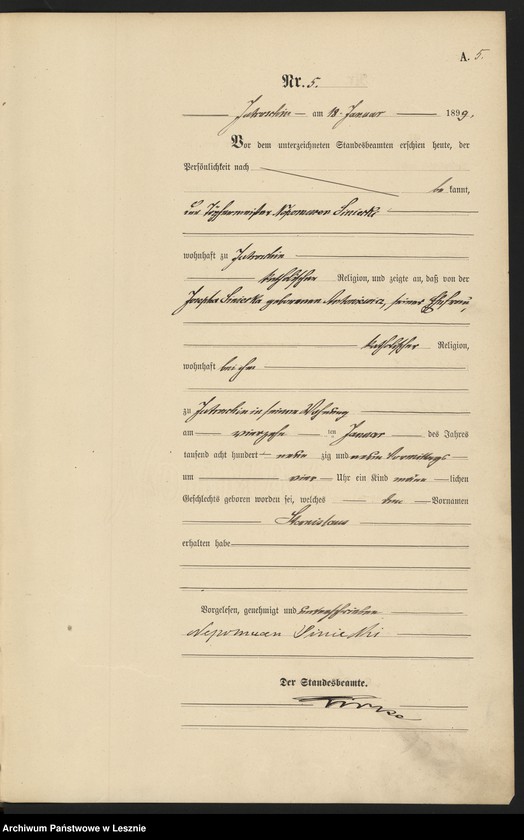 A. 5.
Nr. 5.
Jutroschin am 18. Januar 1899.
Vor dem unterzeichneten Standesbeamten erschien heute, der
Persönlichkeit nach
be kannt,
der Töpfermeister Nepomucen Siniecki
wohnhaft zu Jutroschin
katholischer Religion, und zeigte an, daß von der
Josepha Siniecka geborenen Antoniewicz, seiner Ehefrau,
katholischer Religion,
wohnhaft bei ihm
zu Jutroschin in seiner Wohnung
am vierzehn ten Januar des Jahres
tausend acht hundert neun zig und neun Vormittags
um vier Uhr ein Kind männ lichen
Geschlechts geboren worden sei, welches den Vornamen
Stanislaus
erhalten habe
Vorgelesen, genehmigt und unterschrieben
Nepomucen Siniecki
Der Standesbeamte.
Archiwum Państwowe w Lesznie